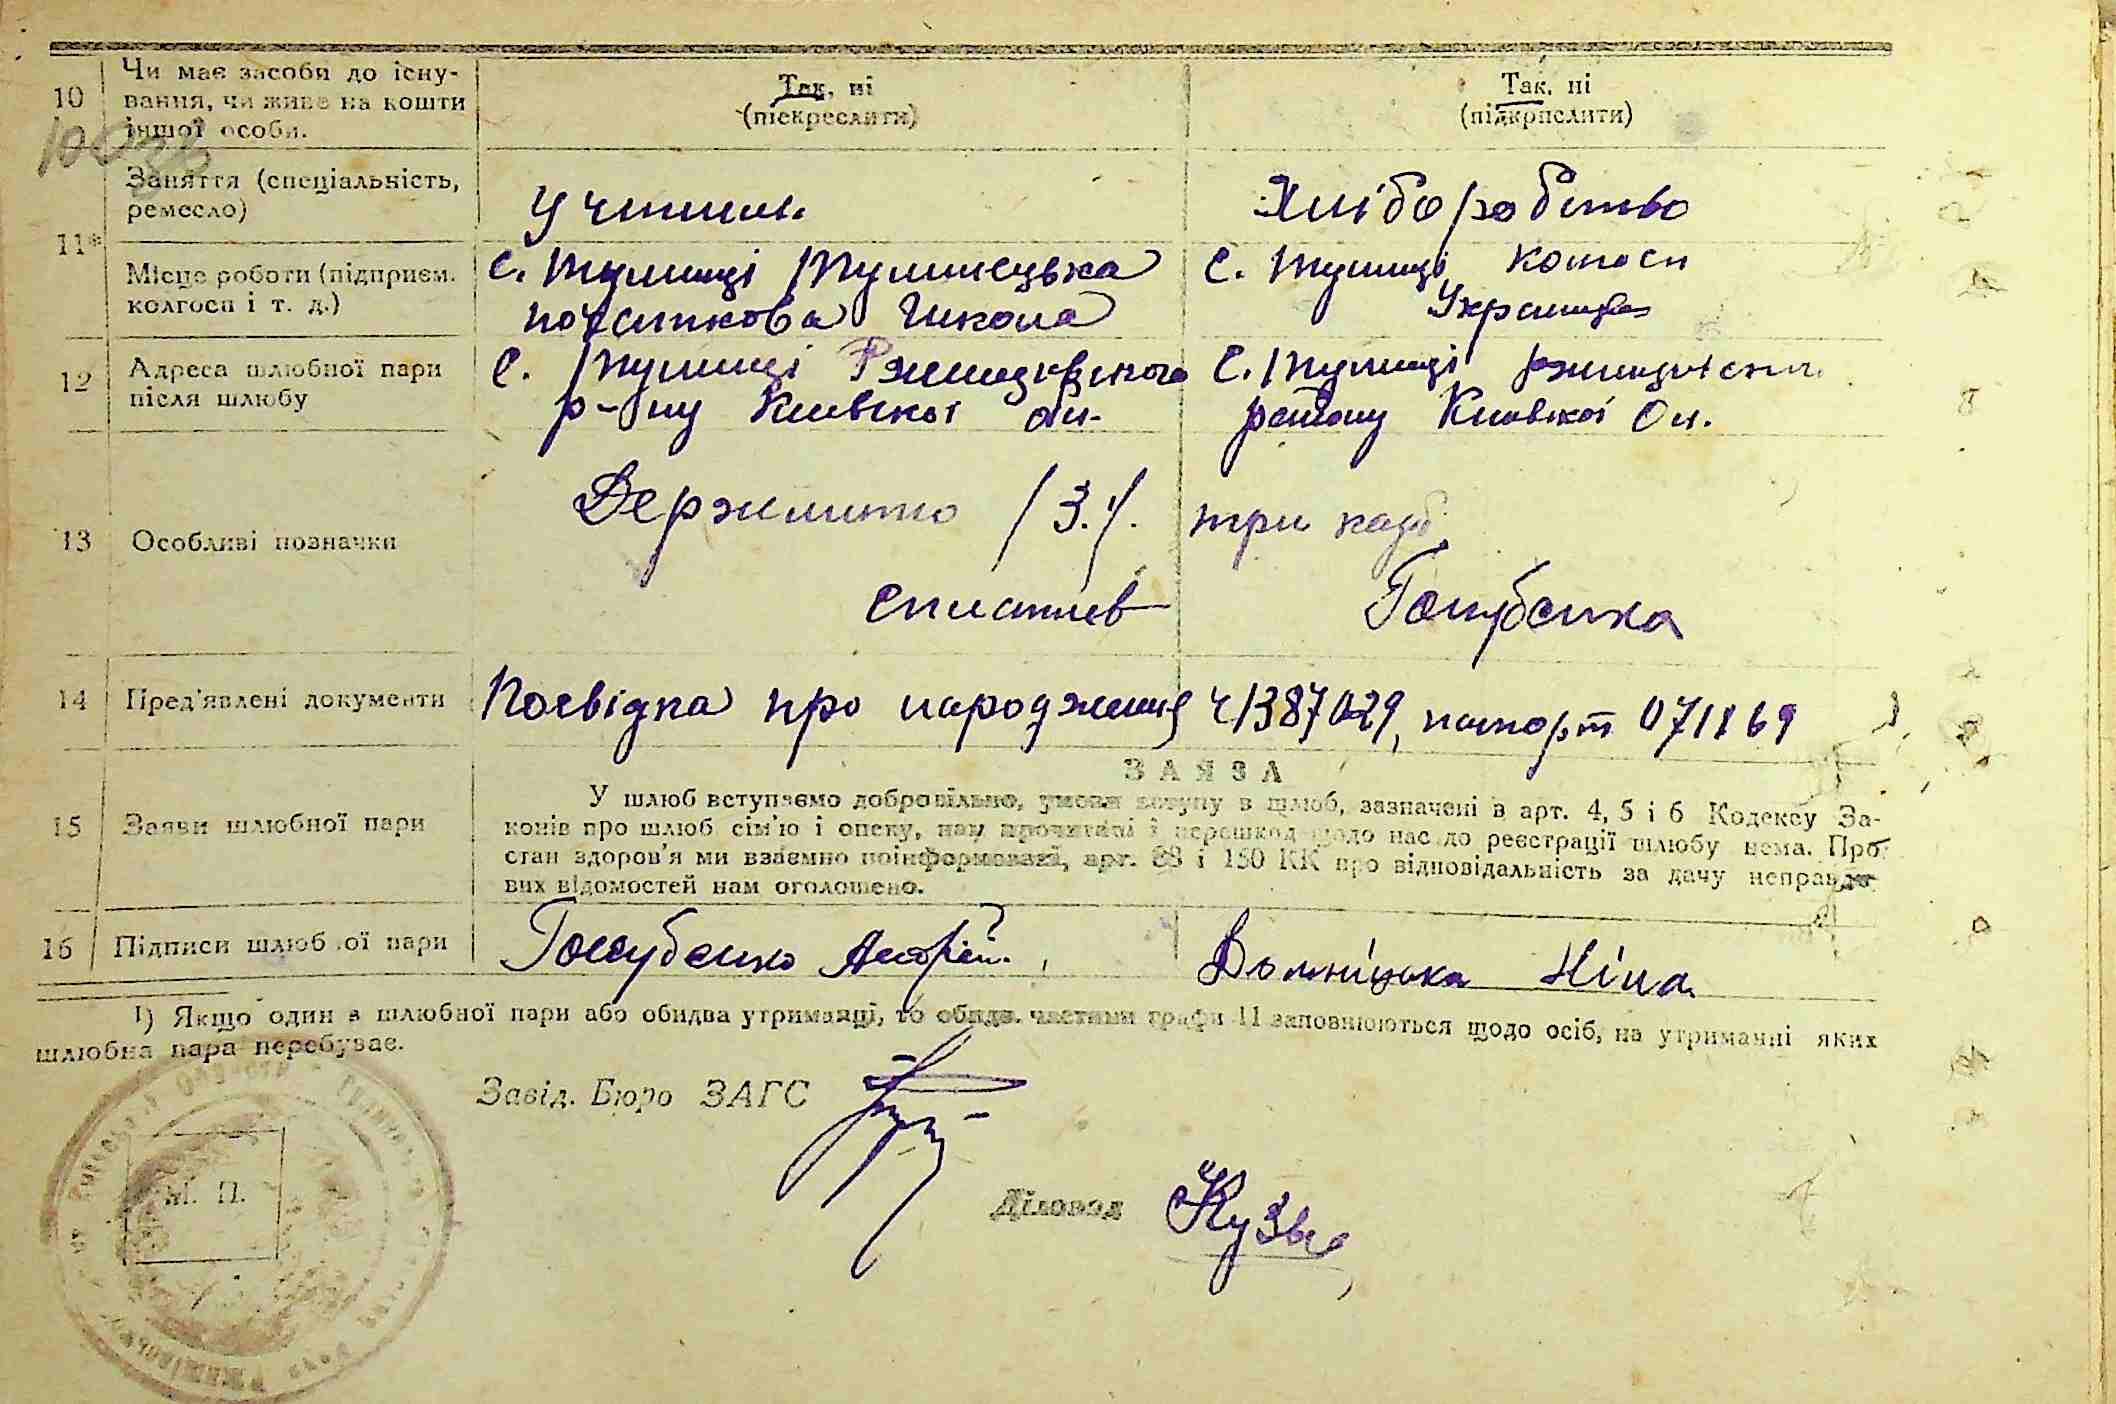 10 Чи має засоби до існу-
вання, чи живе на кошти
іншої особи.
Так, ні
(підкреслити)
Так, ні
(підкрпслити)
11* Заняття (спеціальність,
ремесло)
Учитель
Хліборобство
Місце роботи (підприєм.
колгосп і т. д.)
с. Тулинці Тулинецька
початкова школа
с. Тулинці колгосп
Українка
12 Адреса шлюбної пари
після шлюбу
с. Тулинці Ржищівського
р-ну Київскої Обл.
с. Тулинці Ржищівськ
району Київскої Обл.
13 Особливі позначки
Держмито /3.-/. три карб.
сплатив Голубенко
14 Пред'явлені документи
Посвідка про народження ч 1387029, паспорт 071169
15 Заяви шлюбної пари
ЗАЯВА
У шлюб вступаємо добровільно, умови вступу в шлюб, зазначені в арт. 4, 5 і 6 Кодексу За-
конів про шлюб сім'ю і опеку, нам прочитані і перешкод щодо нас до реєстрації шлюбу нема. Про
стан здоров'я ми взаємно поінформовані, арт. 88 і 150 КК про відповідальність за дачу неправди-
вих відомостей нам оголошено.
16 Підписи шлюбної пари
Голубенко Андрій.
Вольніцька Ніна
1) Якщо один з шлюбної пари або обидва утриманці, то обидв. частини графи 11 заповнюються щодо осіб, на утриманні яких
шлюбна пара перебуває.
Завід. Бюро ЗАГС
М. П.
Діловод